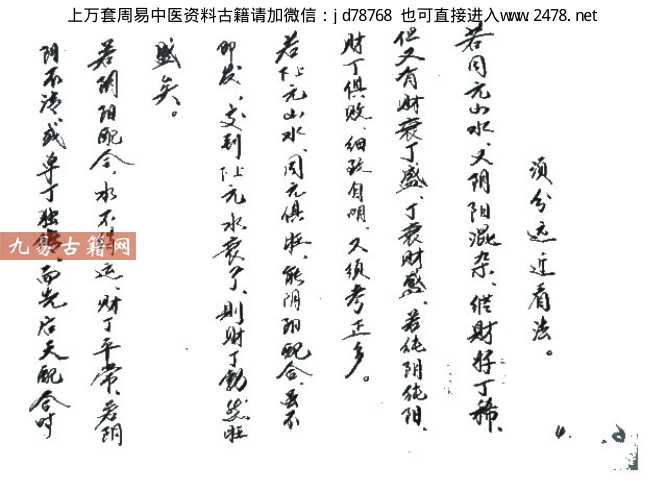 上万套周易中医资料古籍请加微信：jd78768 也可直接进入www.2478.net
须分远近看法。
若同元山水、又阴阳混杂、但财好丁稀、
但又有财衰丁盛、丁衰财盛、若纯阴纯阳、
财丁俱败、细致自明、又须考正多。
若上下元山水、同元俱旺、能阴阳配合、虽不
即发、交到上下元水衰了、则财丁勃然旺
盛矣。
若阴阳配合、水不得运、财丁平常、若阴
阴不清、或单丁独传、而先后天配合时
九易古籍网